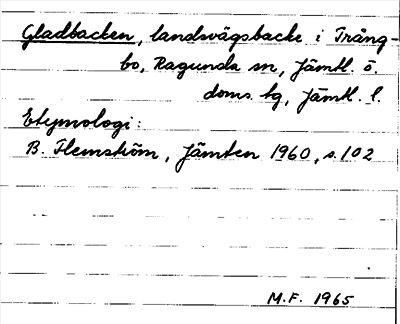 Gladbacken, landsvägsbacke i Trång-
bo, Ragunda sn, Jämtl. ö.
doms. hg, Jämtl. l.
Etymologi:
B. Flemström, Jämten 1960, s. 102
M.F. 1965